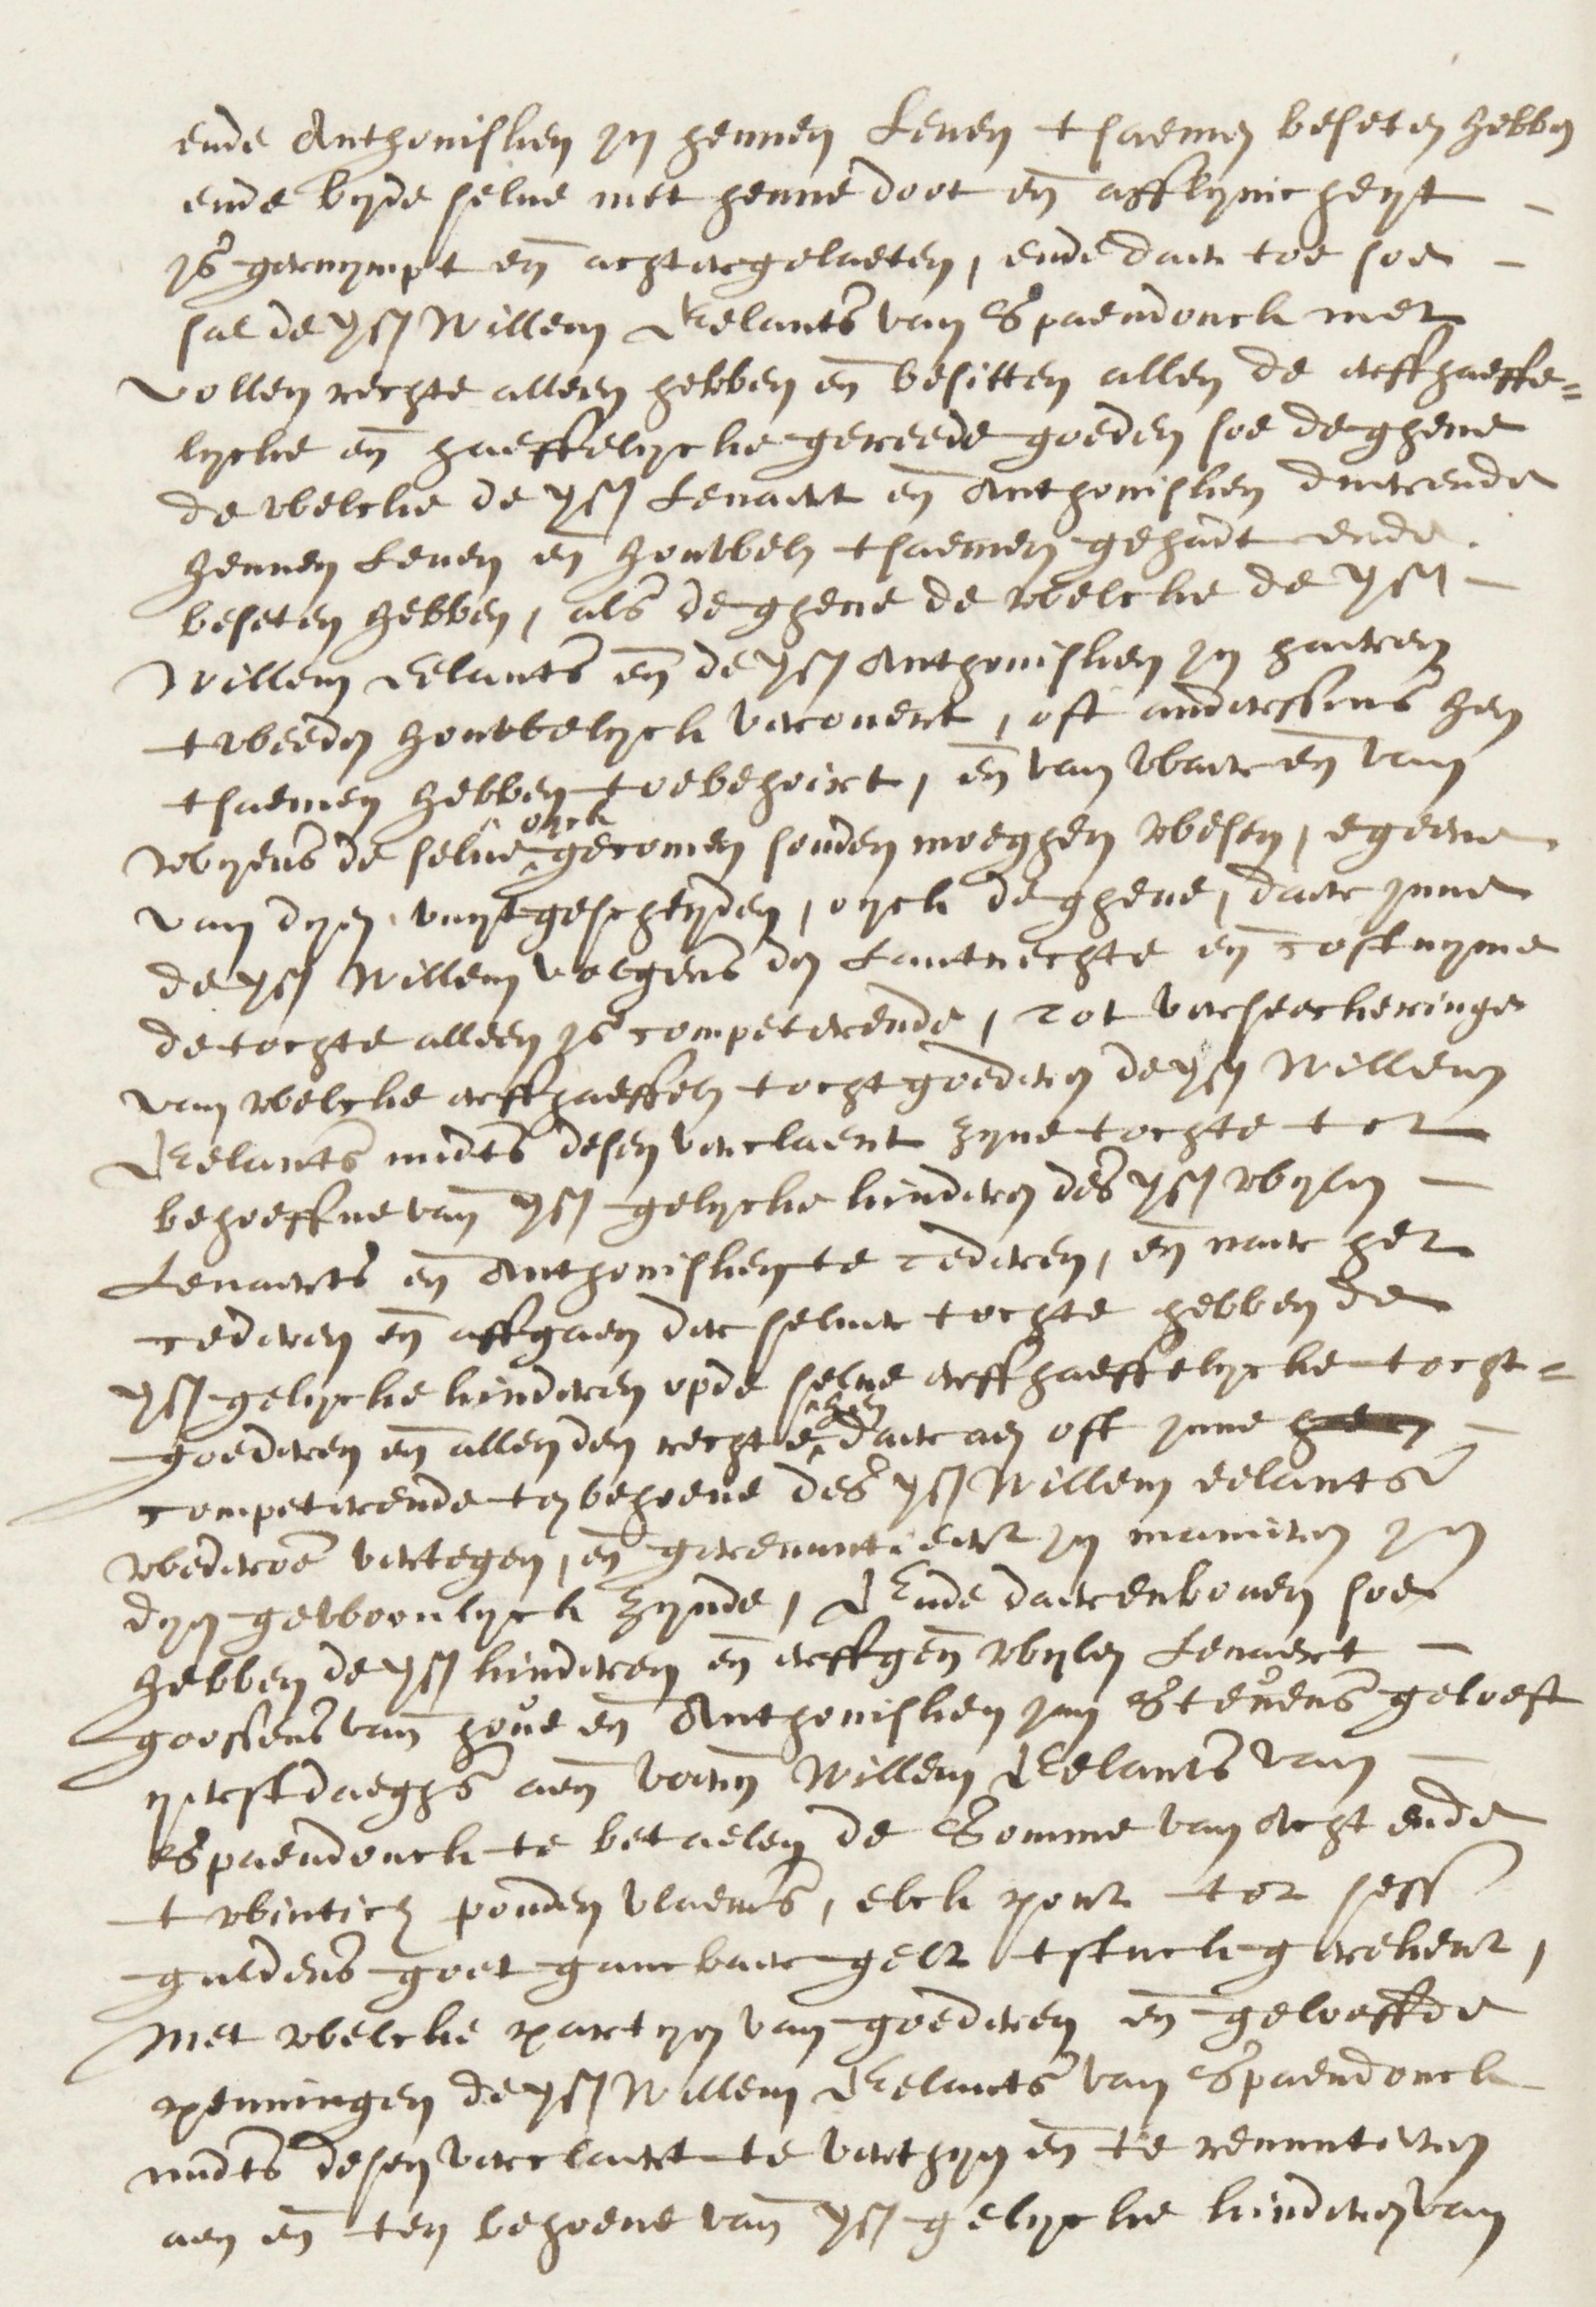 ende Anthonisken jn hennen Leven tsaemen beseten hebben
ende byde selve met henne doot en̄ afflyvicheyt —
js geruympt en̄ achtergelaeten, ende daer toe soe —
sal de vs. Willem Eelants van Spaendonck met
vollen rechte alleen hebben en̄ besitten allen de erffhaeffe=
lycke en̄ haeffelycke gereede goeden soe deghene
de welcke de vs. Lenaert en̄ Anthonisken duerende
hennen Leven en̄ houwel. tsaemen gehadt ende
beseten hebben, als deghene de welcke de vs. —
Willem Eelants en̄ de vs. Anthonisken jn haeren
tweeden houwelyck verovert, oft anderssins hen
tsaemen hebben toebehoirt, en̄ van waer en̄ van
wyens de selve oyck gecomen souden moeghen wesen, egeene
van dyen vuytgescheyden, oyck deghene, daer jnne
de vs. Willem volgens den Lantrechte en̄ costuyme
de tochte alleen js competerende, Tot verseeckeringe
van welcke erffhaeffel. tochtgoederen de vs. Willem
Eelants midts desen verclaert zyne tochte tot
behoeffve van vs. gelycke kinderen des vs. wylen —
Lenaerts en̄ Anthonisken te cederen, en̄ naer het
cederen en̄ affgaen der selver tochte hebben de
vs. gelycke kinderen opde selve erffhaeffelycke tocht=
goederen en̄ allen den rechte hen daer aen oft jnne —
competerende ten behoeve des vs. Willem Eelants
wederoe vertegen, en̄ gerenuntieert jn manieren jn
dyen gewoonlyck zynde, Ende daerenboven soe
hebben de vs. kinderen en̄ erffgen̄ wylen Lenaert —
Goossens van hove en̄ Anthonisken Jan Stevens geloeft
yerstdaeghs aen voern̄ Willem Eelants van —
Spaendonck te betaelen de Somme van Acht ende
twintich ponden vlaems, elck pont tot sess
guldens goet gancbaer gelt tstuck gerekent,
Met welcke partyen van goederen en̄ geloeffde
penningen de vs. Willem Eelants van Spaendonck
midts desen verclaert te verthyen en̄ te renuntieren
aen en̄ ten behoeve van vs. gelycke kinderen van